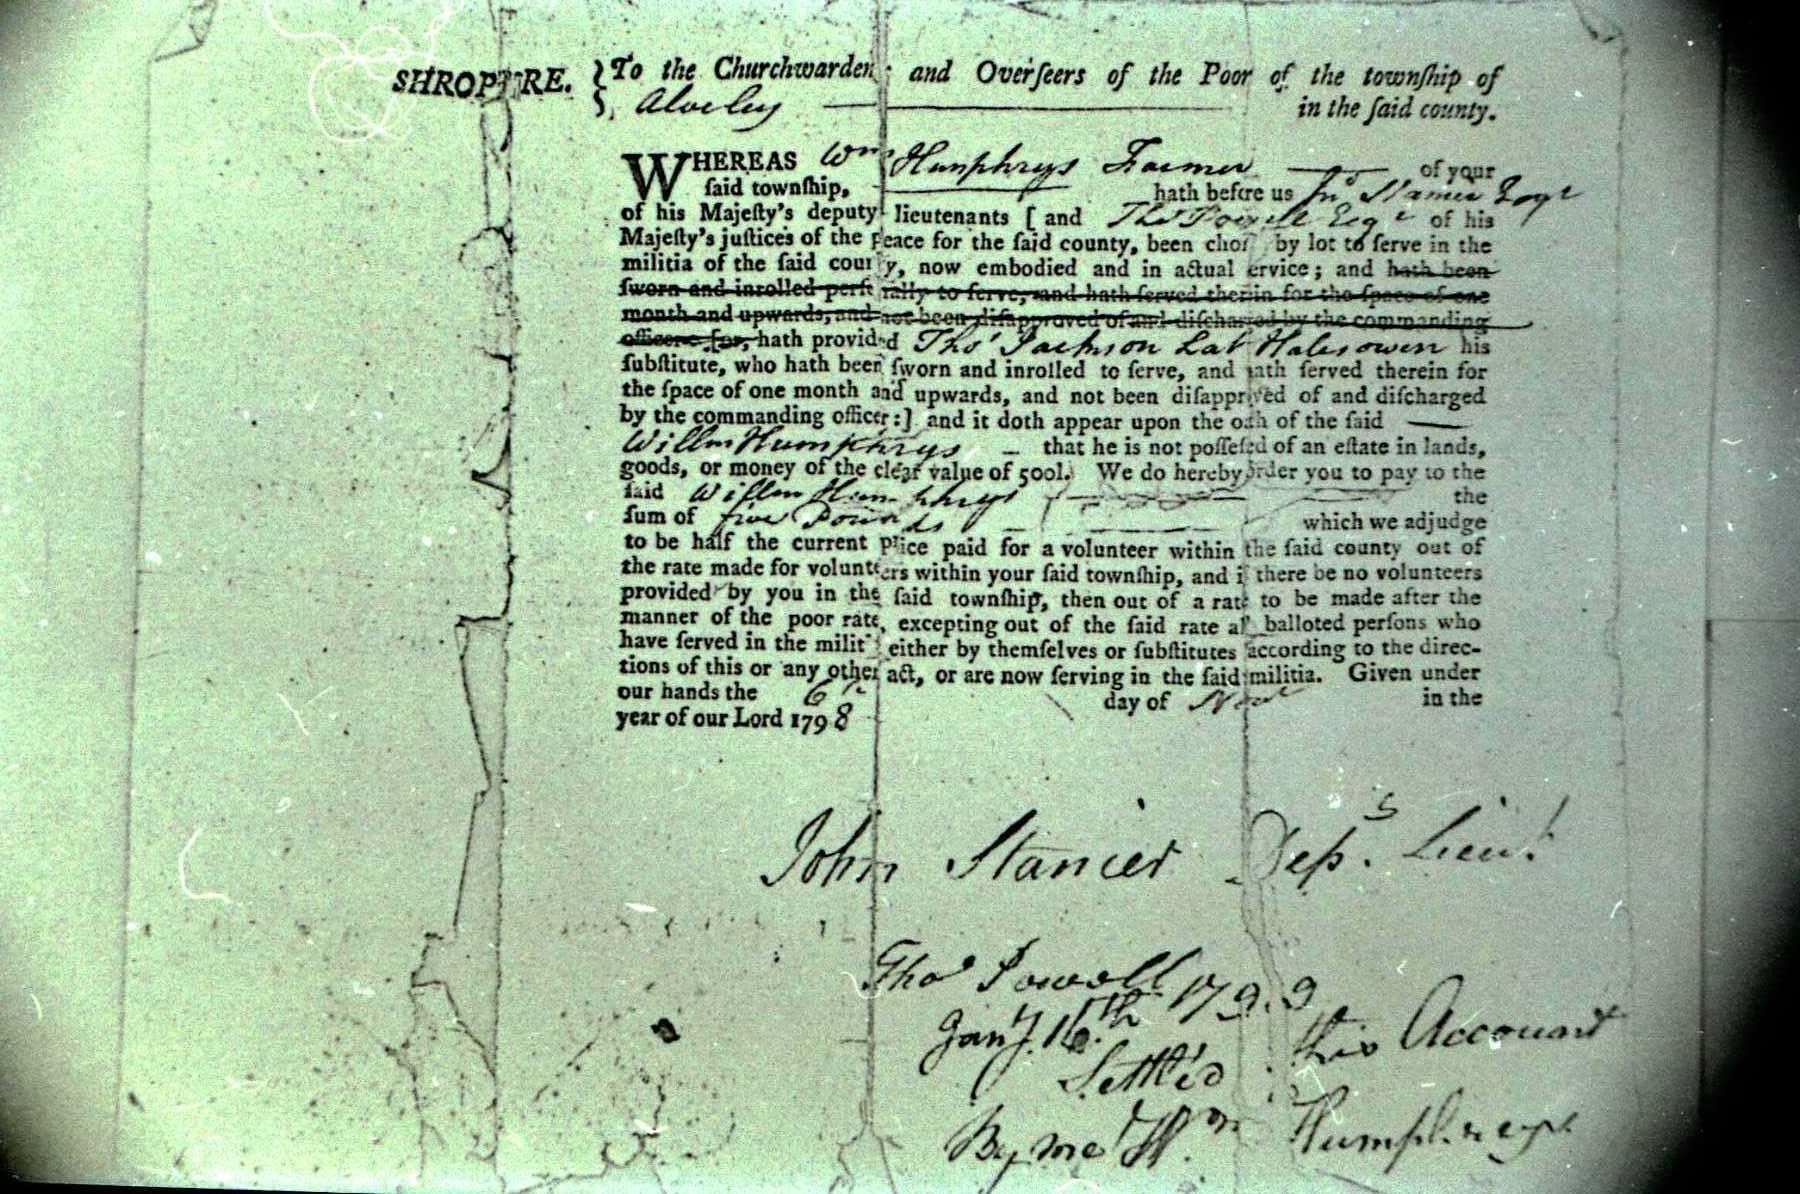 SHROPSHIRE.
To the Churchwardens and Overſeers of the Poor of the townſhip of
Alveley in the ſaid county.
WHEREAS Wm Humphrys Farmer of your
ſaid townſhip, hath before us Jno Stanier Esqr
of his Majeſty's deputy lieutenants [ and Thos Powell Esqr of his
Majeſty's juſtices of the peace for the ſaid county, been choſ by lot to ſerve in the
militia of the ſaid county, now embodied and in actual ſervice; and hath been
ſworn and inrolled perſonally to ſerve, and hath ſerved therein for the ſpace of one
month and upwards, and not been diſapproved of and diſcharged by the commanding
officer: [or, hath provided Thos Jackson Lab Halesowen his
ſubſtitute, who hath been ſworn and inrolled to ſerve, and hath ſerved therein for
the ſpace of one month and upwards, and not been diſapproved of and diſcharged
by the commanding officer:] and it doth appear upon the oath of the ſaid
Willm Humphrys that he is not poſſeſſed of an eſtate in lands,
goods, or money of the clear value of 500l. We do hereby order you to pay to the
ſaid Willm Humphrys the
ſum of five Pounds which we adjudge
to be half the current price paid for a volunteer within the ſaid county out of
the rate made for volunteers within your ſaid townſhip, and if there be no volunteers
provided by you in the ſaid townſhip, then out of a rate to be made after the
manner of the poor rate, excepting out of the ſaid rate all balloted perſons who
have ſerved in the militia either by themſelves or ſubſtitutes according to the direc-
tions of this or any other act, or are now ſerving in the ſaid militia. Given under
our hands the 6th day of Novr in the
year of our Lord 1798
John Stanier Depy Lieut
Thos Powell
Jany. 16th 1799
Settled this Account
By me Wm Humphreys